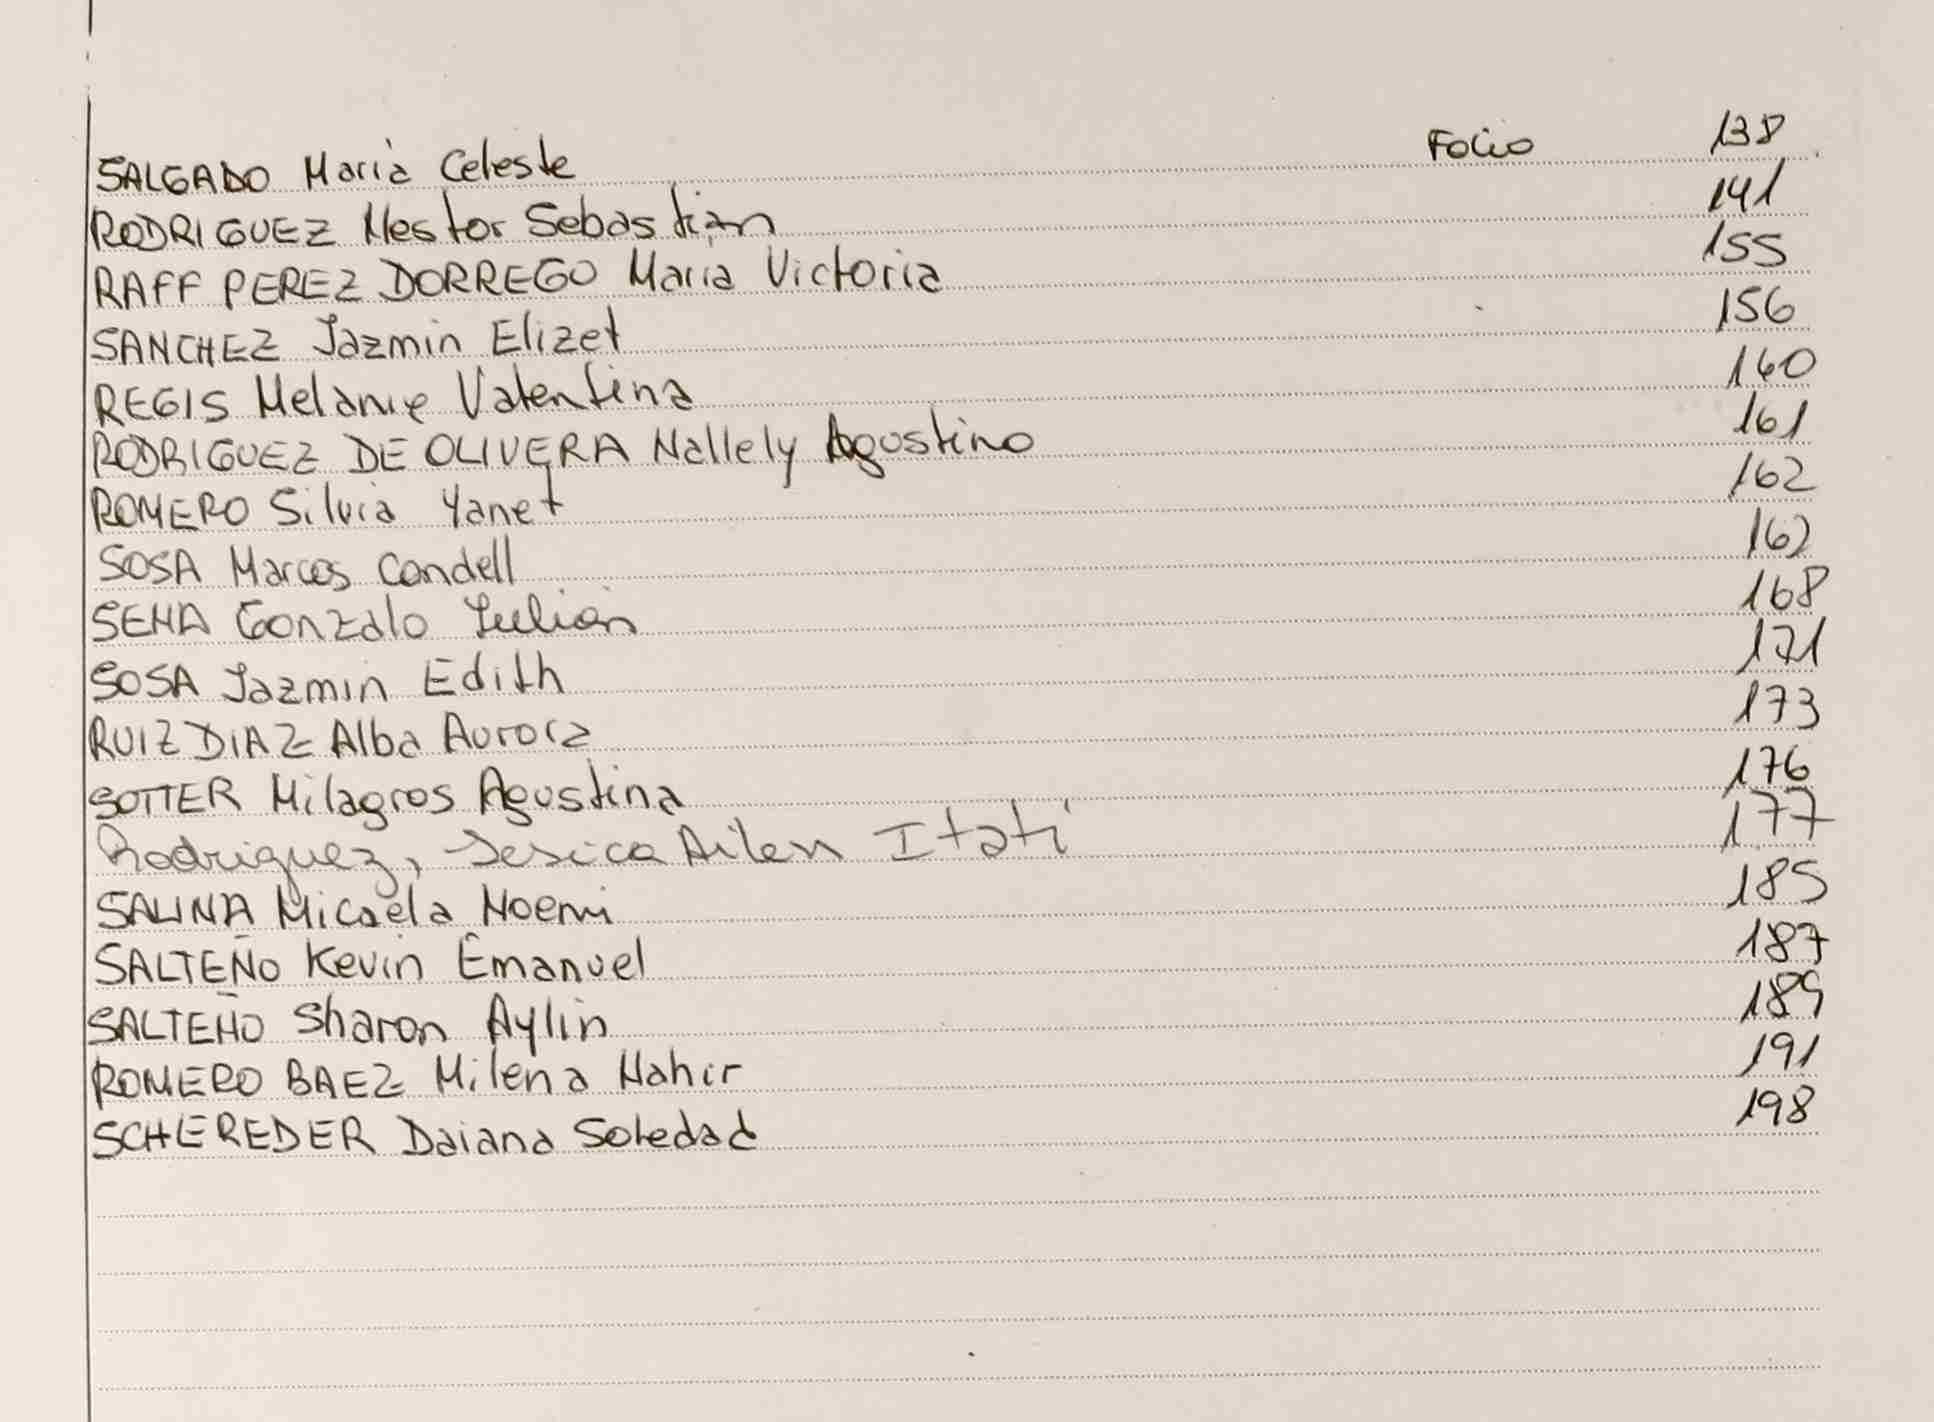 SALGADO Maria Celeste Folio 138
RODRIGUEZ Nestor Sebastian 141
RAFF PEREZ DORREGO Maria Victoria 155
SANCHEZ Jazmin Elizet 156
REGIS Melanie Valentina 160
RODRIGUEZ DE OLIVERA Nallely Agostino 161
ROMERO Silvia Yanet 162
SOSA Marcos Candell 162
SENA Gonzalo Julian 168
SOSA Jazmin Edith 171
RUIZ DIAZ Alba Aurora 173
SOTTER Milagros Agustina 176
Rodriguez, Jesica Ailen Itati 177
SALINA Micaela Noemi 185
SALTEÑO Kevin Emanuel 187
SALTEÑO Sharon Aylin 189
ROMERO BAEZ Milena Nahir 191
SCHEREDER Daiana Soledad 198